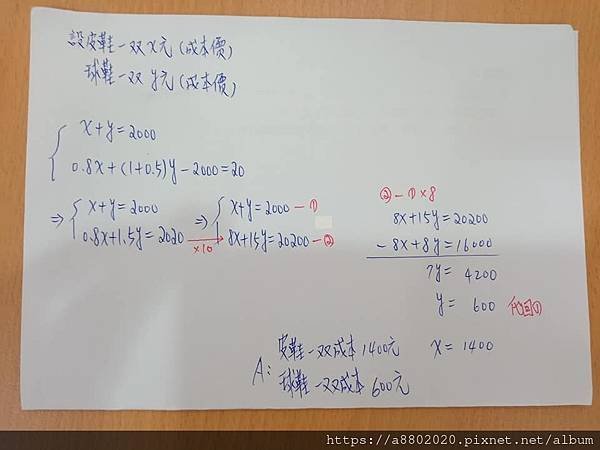 設皮鞋一双x元(成本價)
球鞋一双y元(成本價)
x+y=2000
0.8x+(1+0.5)y-2000=20
⇒ x+y=2000
0.8x+1.5y=2020
×10
⇒ x+y=2000 —①
8x+15y=20200 —②
②-①×8
8x+15y=20200
- 8x+8y=16000
7y= 4200
y= 600 代回①
x= 1400
A: 皮鞋一双成本1400元
球鞋一双成本600元
https://a8802020.pixnet.net/album